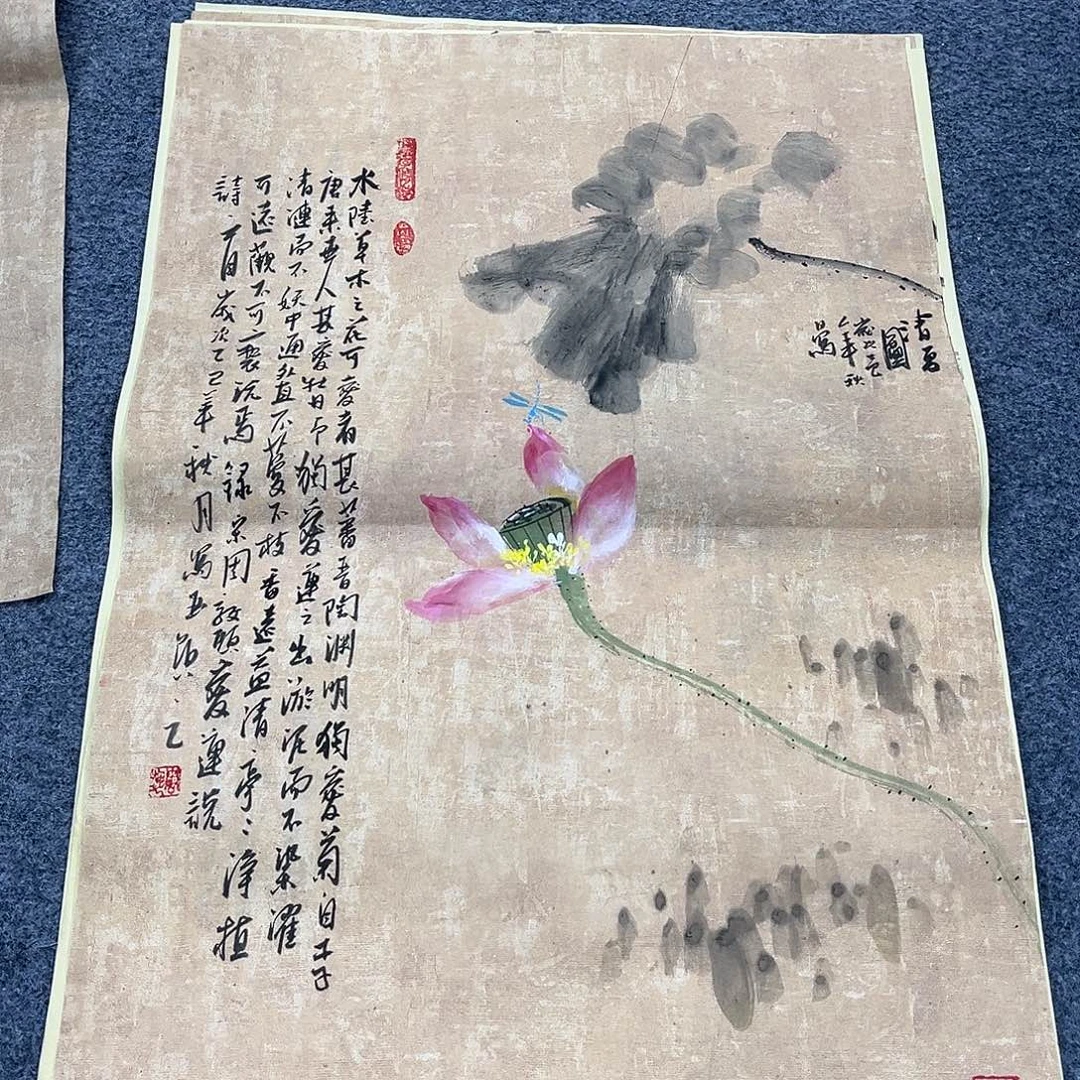 水陸草木之花可愛者甚蕃晋陶渊明獨愛菊自李
唐来世人甚愛牡丹予獨愛蓮之出淤泥而不染濯
清漣而不妖中通外直不蔓不枝香遠益清亭亭净植
可遠觀不可褻玩焉錄宋周敦頤愛蓮説
詩一首歲次乙巳年秋月寫
國
年秋
寫